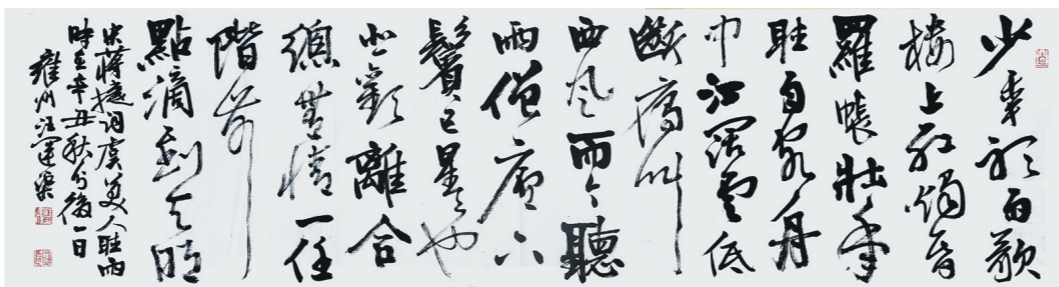 少年聽雨歌
樓上紅燭昏
羅帳壯年
聽雨客舟
中江闊雲低
斷雁叫
西風而今聽
雨僧廬下
鬢已星星也
悲歡離合
總無情一任
階前
點滴到天明
宋蔣捷詞虞美人聽雨
時在辛丑秋分後一日
雍州汪運渠